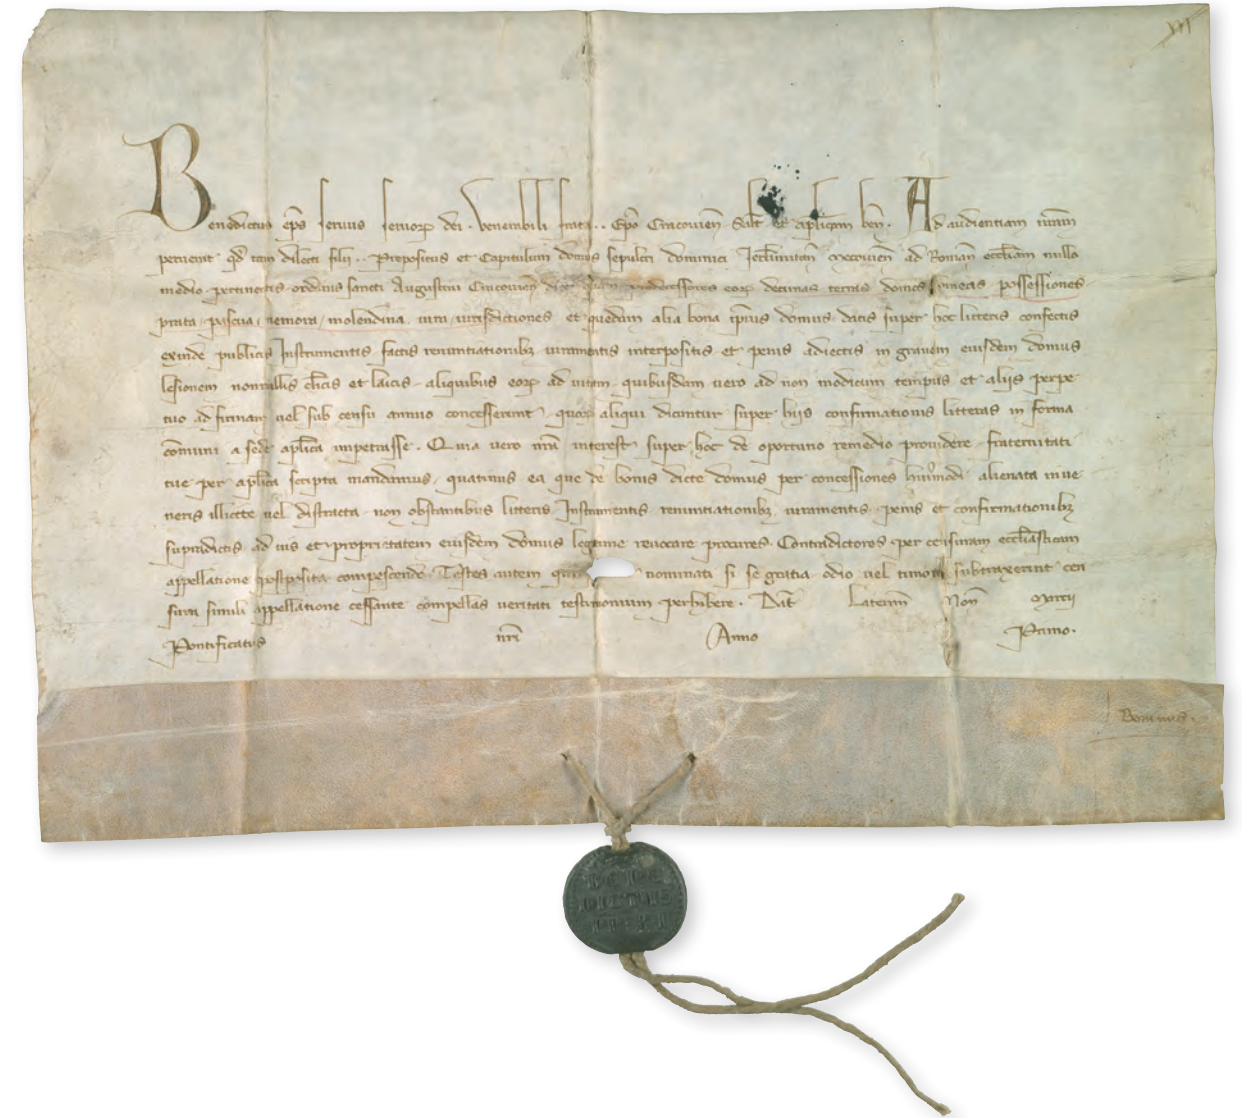 Benedictus ep̄s servus servoꝝ dei. Venerabili frat̄ri .. Ep̄o Cracovien̄ Sal̄t et ap̄licam ben̄. Ad audientiam nr̄am
pervenit qđ tam dilecti filij .. Prepositus et Capitulum domus sepulcri dominici Jerl̄imitan̄ Mecovien̄ ad Roman̄ eccl̄iam nullo
medio pertinentis ordinis sancti Augustini Cracovien̄ dioc̄ predecessores eoꝝ decimas terras domos vineas possessiones
prata pascua nemora molendina iura iurisdictiones et quedam alia bona ip̄ius domus datis super hoc litteris confectis
exinde publicis Instrumentis factis renuntiationibꝫ iuramentis interpositis et penis adiectis in gravem eiusdem domus
lesionem nonnullis cl̄icis et laicis aliquibus eoꝝ ad vitam quibusdam vero ad non modicum tempus et alijs perpe
tuo ad firmam vel sub censu annuo concesserunt quoꝝ aliqui dicuntur super hijs confirmationis litteras in forma
com̄uni a sede ap̄lica impetrasse. Quia vero nr̄a interest super hoc de oportuno remedio providere fraternitati
tue per ap̄lica scripta mandamus quatinus ea que de bonis dicte domus per concessiones huiꝰmodi alienata inve
neris illicite vel distracta non obstantibus litteris Instrumentis renuntiationibꝫ iuramentis penis et confirmationibꝫ
supradictis ad ius et proprietatem eiusdem domus legitime revocare procures. Contradictores per censuram eccl̄iasticam
appellatione postposita compescendo. Testes autem qui nominati si se gratia odio vel timore subtraxerint cen
sura simili appellatione cessante compellas veritati testimonium perhibere. Dat̄ Lateran̄ Non̄
Pontificatus nr̄i Anno Primo.